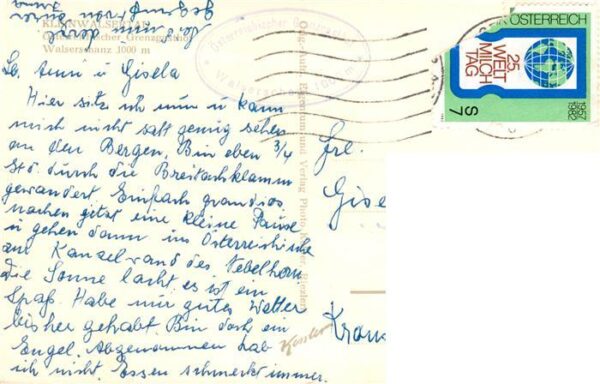 KLEINWALSERTAL
Österreichischer Grenzgasthof
Walserschanz 1000 m
Österreichischer Grenzgasthof
Walserschanz 1000 m
ÖSTERREICH
25
WELT
MILCH
TAG
1957
1982
S 7
Lb. Anni u Gisela
Hier sitz ich nun u kann
mich nicht satt genug sehen
an den Bergen. Bin eben 3/4
Std. durch die Breitachklamm
gewandert Einfach grandios
machen jetzt eine kleine Pause
u gehen dann ins Österreichische
zur Kanzelwand des Nebelhorn
Die Sonne lacht. es ist ein
Spaß. Habe nur gutes Wetter
bisher gehabt. Bin doch ein
Engel. Abgenommen hab
ich nicht. Essen schmeckt immer.
Frl.
Gise
Kron
Eigentum und Verlag Photo